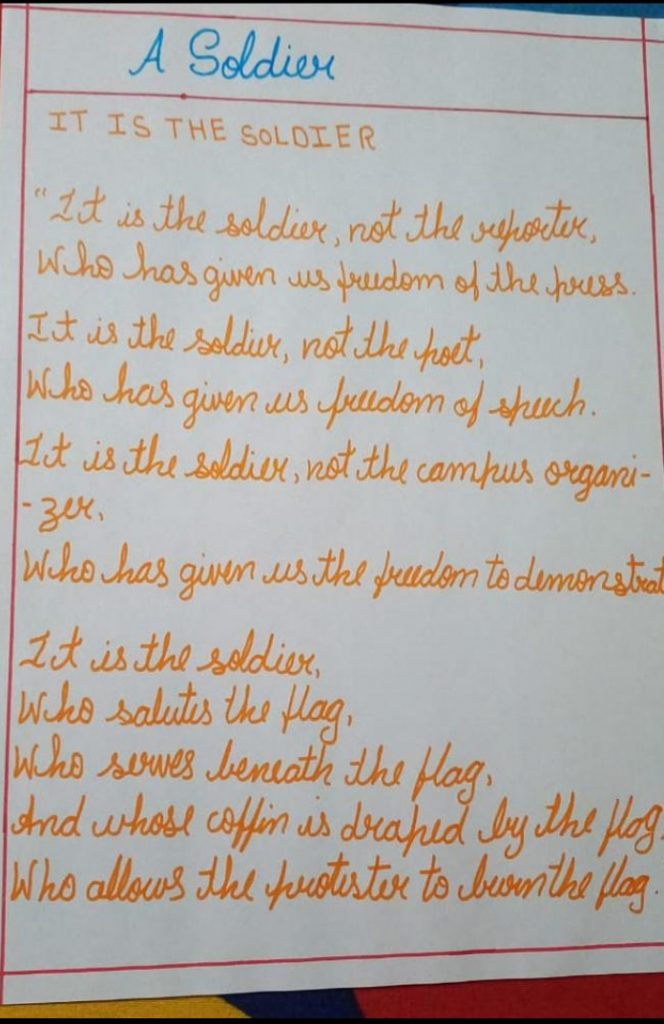 A Soldier
IT IS THE SOLDIER
"It is the soldier, not the reporter,
Who has given us freedom of the press.
It is the soldier, not the poet,
Who has given us freedom of speech.
It is the soldier, not the campus organi-
-zer,
Who has given us the freedom to demonstrat
It is the soldier,
Who salutes the flag,
Who serves beneath the flag,
And whose coffin is draped by the flag,
Who allows the protester to burn the flag.